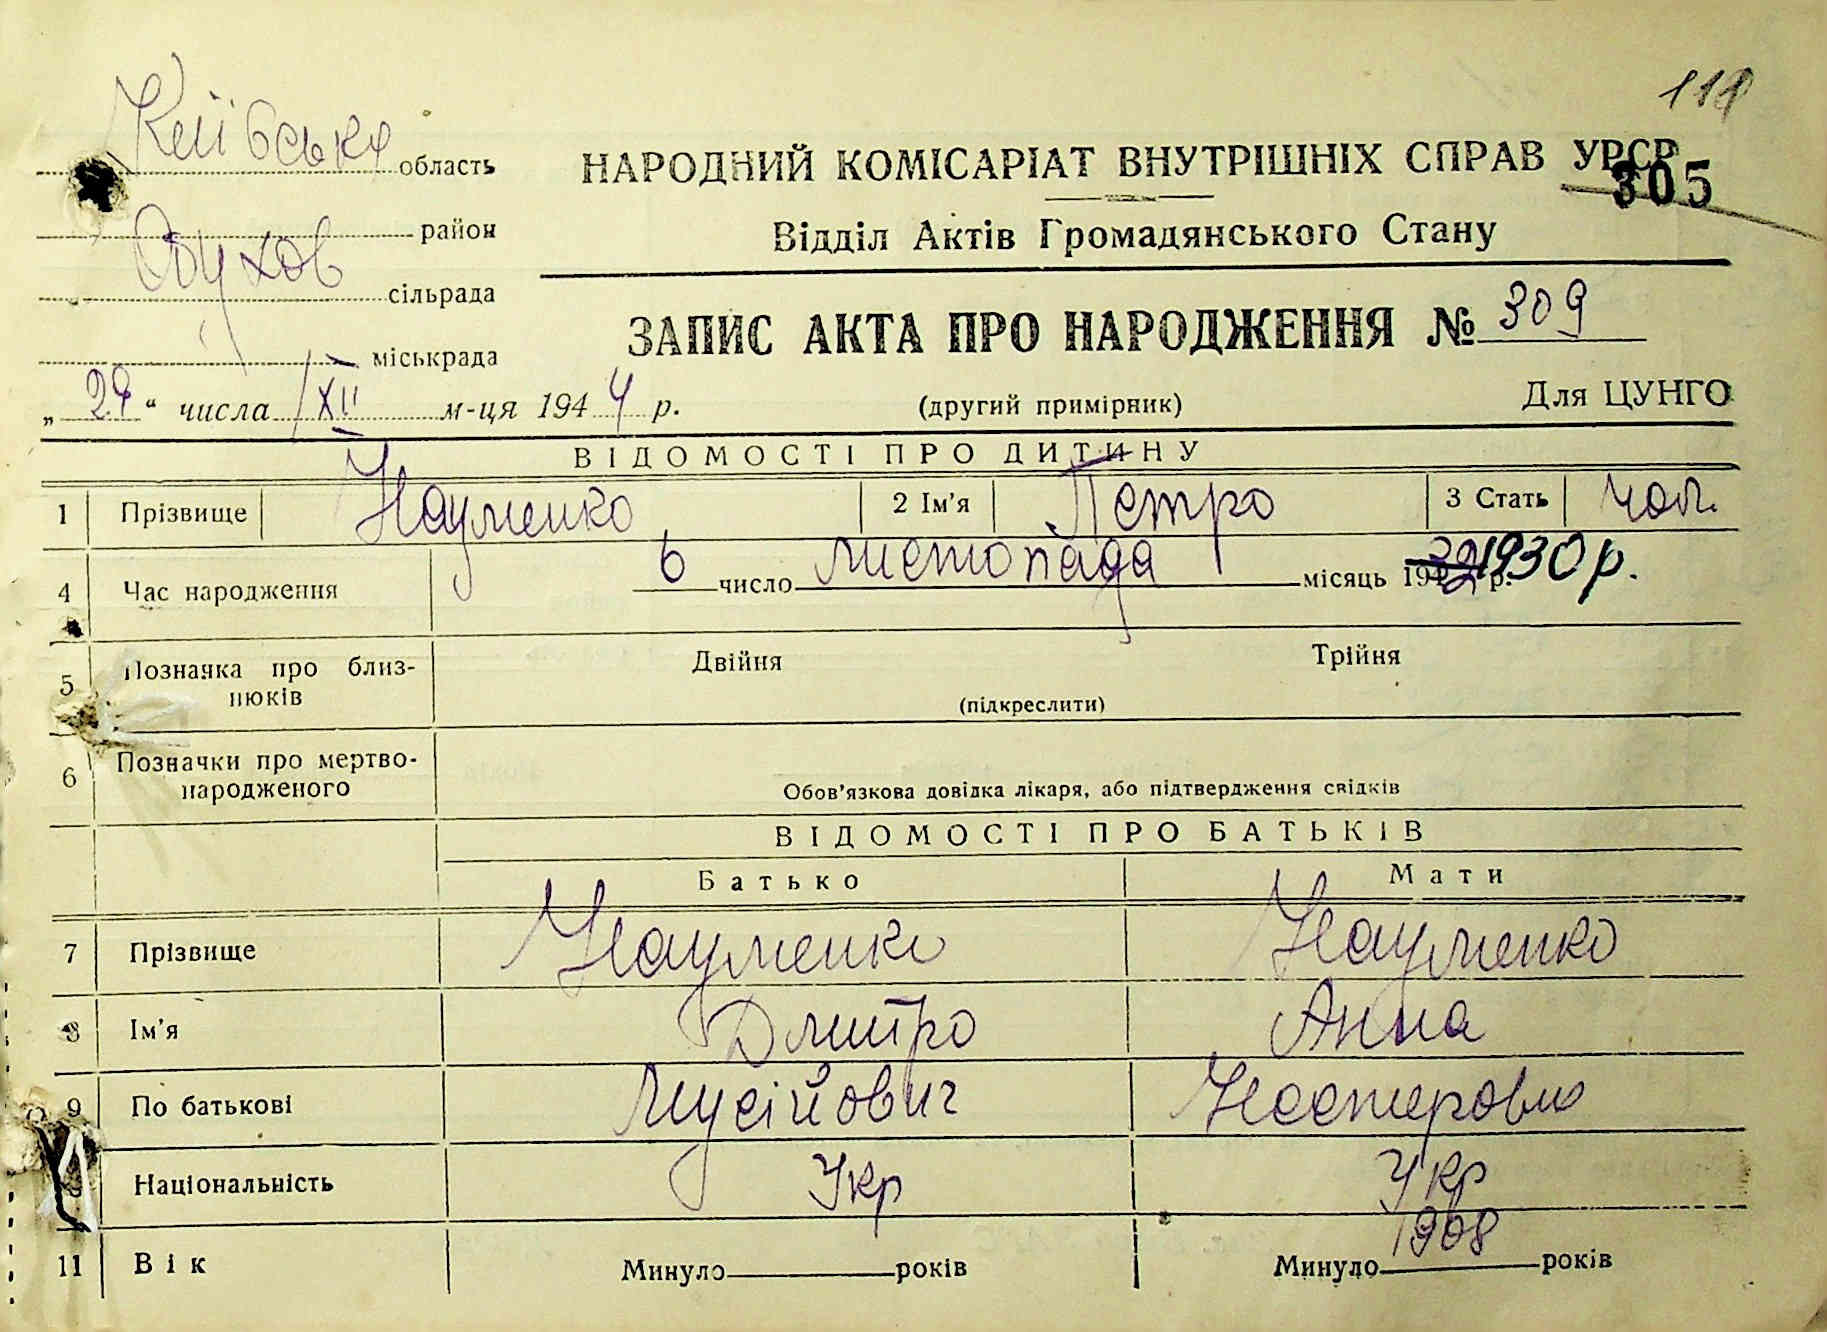 Київська область
НАРОДНИЙ КОМІСАРІАТ ВНУТРІШНІХ СПРАВ УРСР
305
район
Відділ Актів Громадянського Стану
Обухов
сільрада
ЗАПИС АКТА ПРО НАРОДЖЕННЯ № 309
міськрада
„29“ числа XII м-ця 1944 р.
(другий примірник)
Для ЦУНГО
ВІДОМОСТІ ПРО ДИТИНУ
1 Прізвище Науменко 2 Ім'я Петро 3 Стать чол.
4 Час народження 6 число листопада місяць 1930 р.
5 Позначка про близнюків Двійня Трійня
(підкреслити)
6 Позначки про мертвонародженого
Обов'язкова довідка лікаря, або підтвердження свідків
ВІДОМОСТІ ПРО БАТЬКІВ
Батько Мати
7 Прізвище Науменко Науменко
8 Ім'я Дмитро Анна
9 По батькові Мусійович Нестеровна
Національність Укр Укр
11 Вік Минуло років Минуло 1908 років